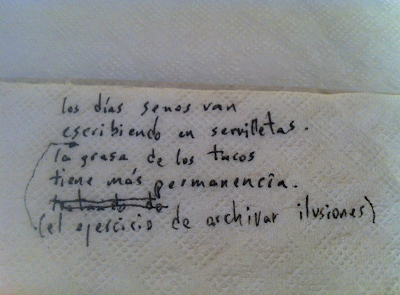 los días senos van
escribiendo en servilletas.
la grasa de los tacos
tiene más permanencia.
tratando de
(el ejercicio de archivar ilusiones)